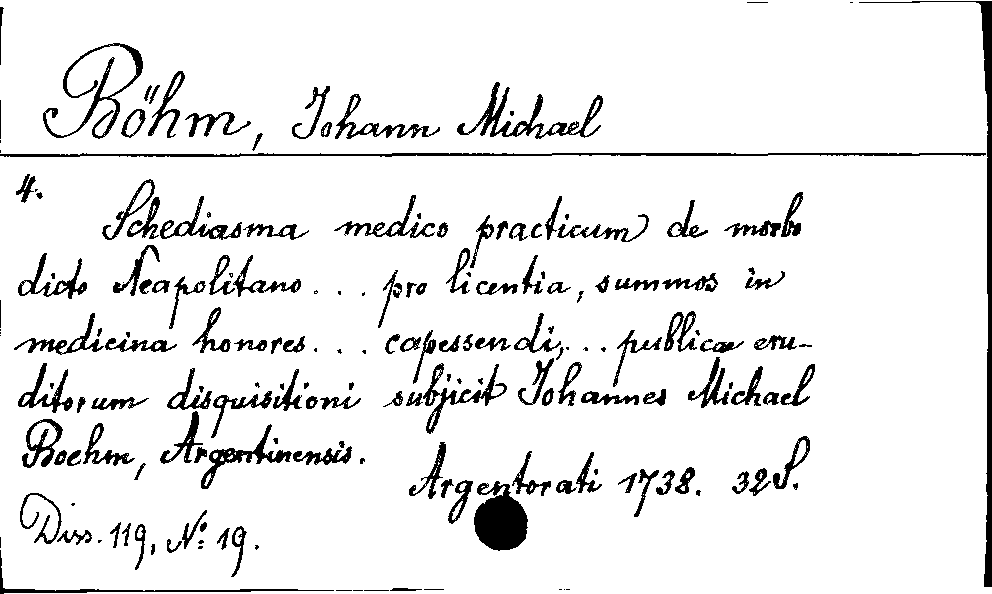 Böhm, Johann Michael
4.
Schediasma medico practicum de morbo
dicto Neapolitano . . . pro licentia, summos in
medicina honores . . . capessendi, . . . publicæ eru-
ditorum disquisitioni subjicit Johannes Michael
Boehm, Argentinensis.
Argentorati 1738. 32 S.
Diss. 119, No: 19.